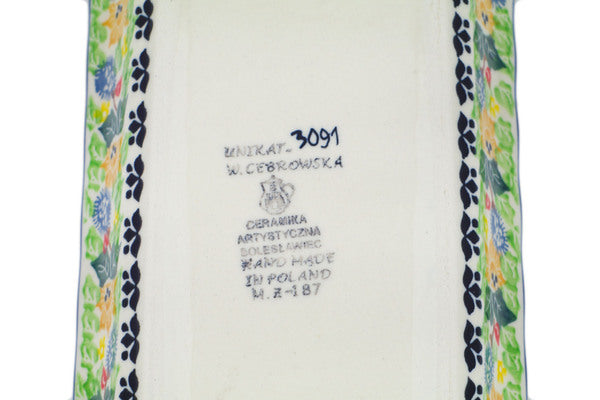 UNIKAT- 3091
W. CEBROWSKA
CERAMIKA
ARTYSTYCZNA
BOLESŁAWIEC
HAND MADE
IN POLAND
M. Z-187